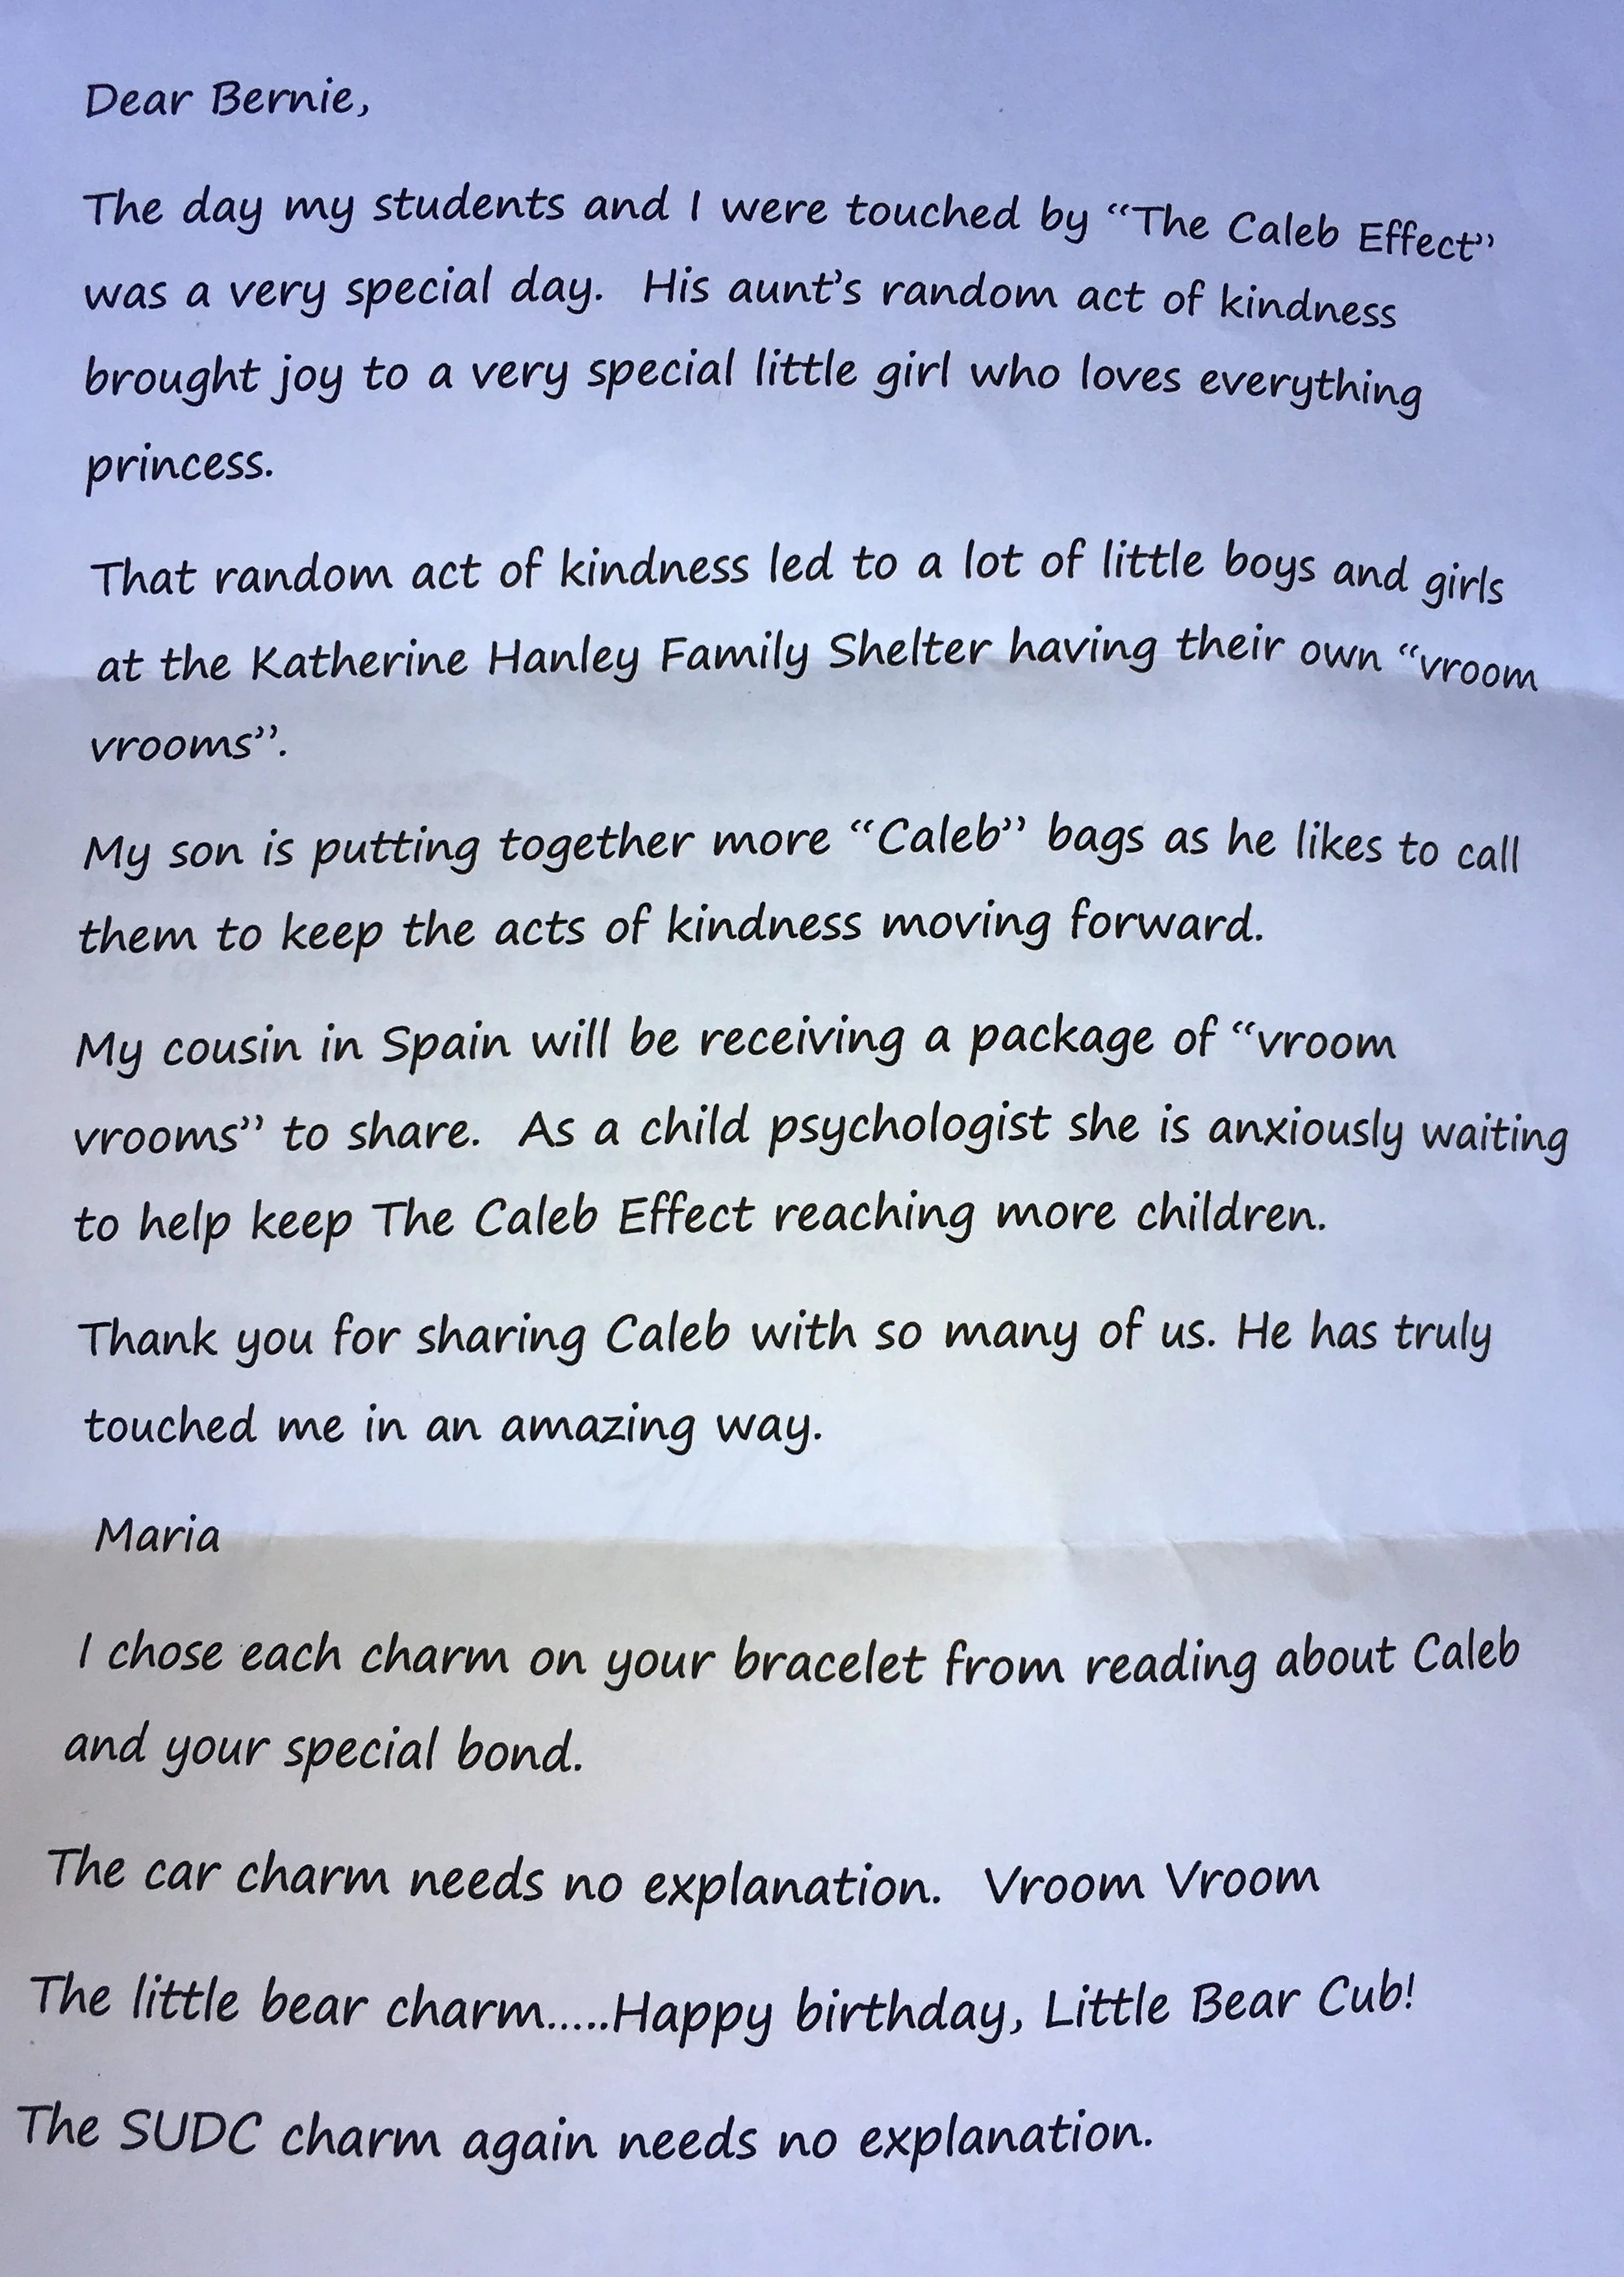 Dear Bernie,
The day my students and I were touched by “The Caleb Effect”
was a very special day.  His aunt’s random act of kindness
brought joy to a very special little girl who loves everything
princess.
That random act of kindness led to a lot of little boys and girls
at the Katherine Hanley Family Shelter having their own “vroom
vrooms”.
My son is putting together more “Caleb” bags as he likes to call
them to keep the acts of kindness moving forward.
My cousin in Spain will be receiving a package of “vroom
vrooms” to share.  As a child psychologist she is anxiously waiting
to help keep The Caleb Effect reaching more children.
Thank you for sharing Caleb with so many of us. He has truly
touched me in an amazing way.
Maria
I chose each charm on your bracelet from reading about Caleb
and your special bond.
The car charm needs no explanation.  Vroom Vroom
The little bear charm.....Happy birthday, Little Bear Cub!
The SUDC charm again needs no explanation.